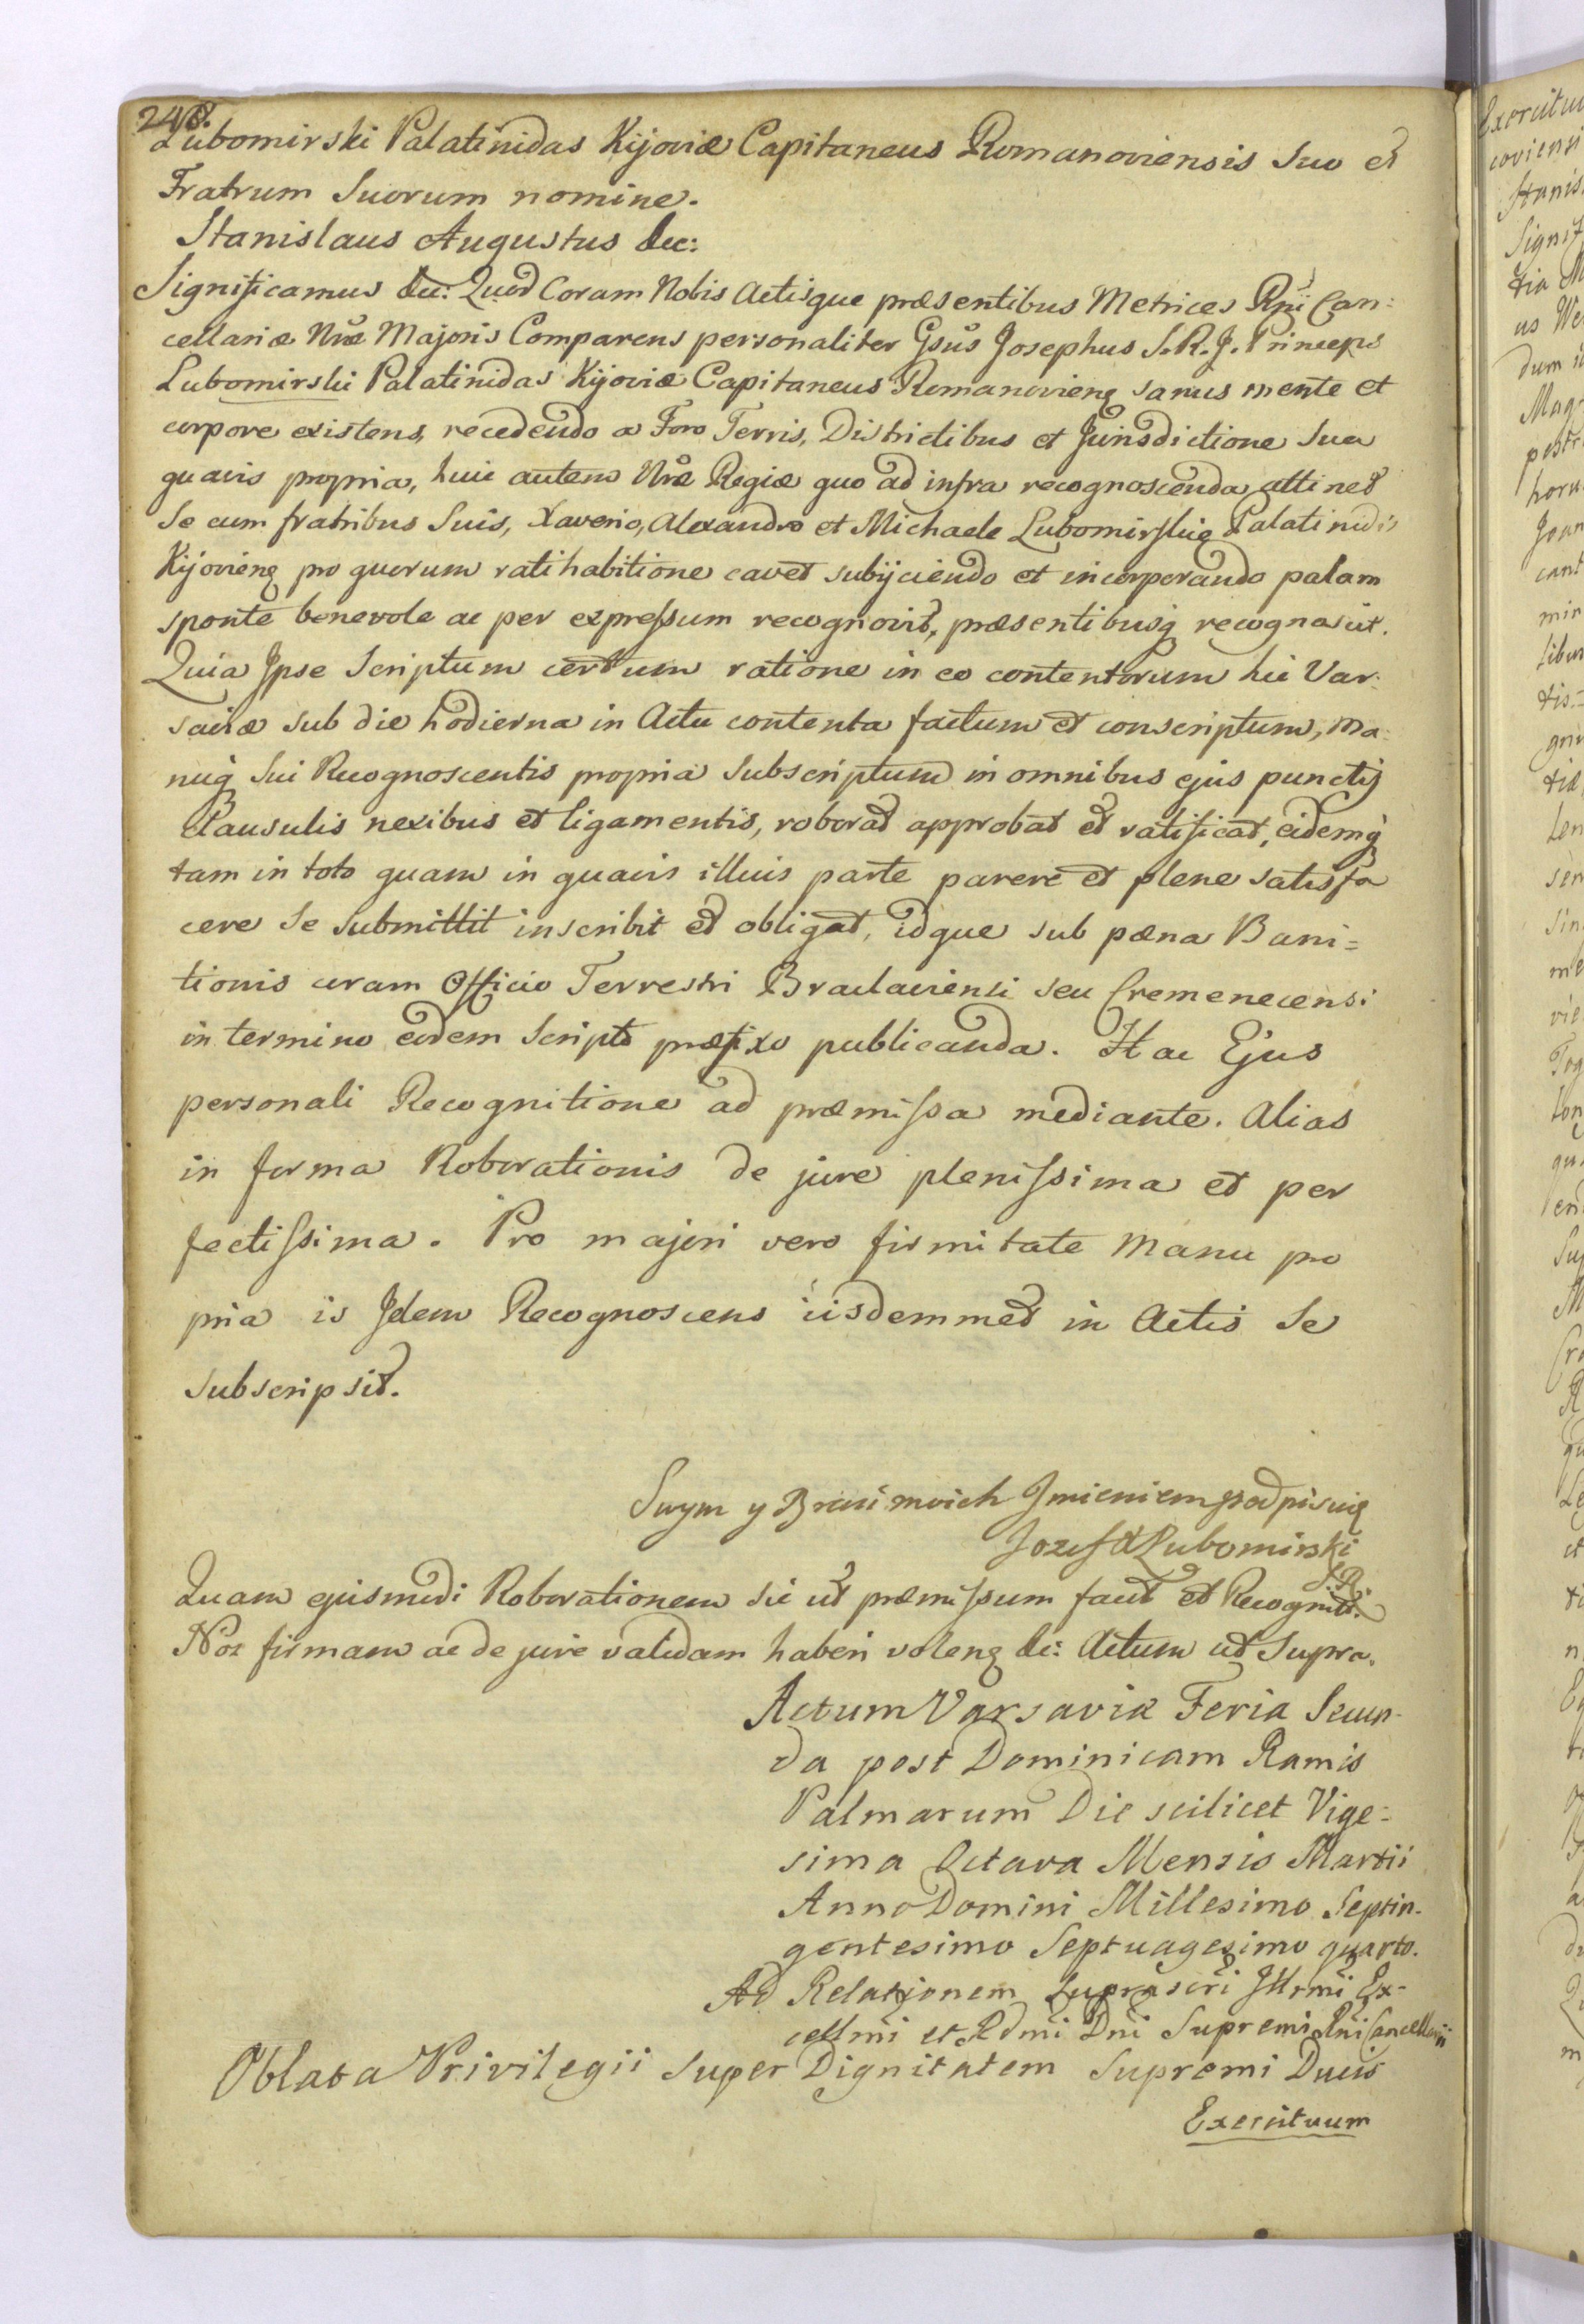 248.
Lubomirski Palatinidas Kijoviæ Capitaneus Romanoviensis Suo et
Fratrum Suorum nomine.
Stanislaus Augustus &c:
Significamus &c: Quod Coram Nobis Actisque præsentibus Metrices Rni Can:
cellariæ Nræ Majoris Comparens personaliter Gsus Josephus S.R.J. Princeps
Lubomirski Palatinidas Kijoviæ Capitaneus Romanovienę sanus mente et
corpore existens, recedendo a Foro Terris, Districtibus et Jurisdictione Sua
quavis propria, huic autem Nræ Regiæ quo ad infra recognoscenda attinet
Se cum fratribus Suis, Xaverio, Alexandro et Michaele Lubomirskie Palatinidis
Kijovienę pro quorum ratihabitione cavet subijciendo et incorporando palam
sponte benevole ac per expreſsum recognovit, præsentibusq recognoscit.
Quia Jpse Scriptum certum ratione in eo contentorum hic Var:
saviæ sub die hodierna in Actu contenta factum et conscriptum, Ma:
nuq Sui Recognoscentis propria Subscriptum in omnibus ejus punctis
Clausulis nexibus et ligamentis, roborat approbat et ratificat, eidemq
tam in toto quam in quavis illius parte parere et plene satisfa
cere Se submittit inscribit et obligat, idque sub pæna Bani=
tionis coram Officio Terrestri Braclaviensi seu Cremenecensi
in termino eodem Scripto præfixo publicanda. Hac Ejus
personali Recognitione ad præmiſsa mediante. Alias
in forma Roborationis de jure pleniſsima et per
fectiſsima. Pro majori vero firmitate Manu pro
pria is Jdem Recognoscens iisdemmet in Actis Se
Subscripsit.
Swym y Braci moich Jmieniem podpisuię
Jozef X Lubomirski
Quam ejusmodi Roborationem sic ut præmiſsum facit et Recognit.
Nos firmam ac de jure validam haberi volenę &c: Actum ut Supra.
Actum Varsaviæ Feria Secun-
da post Dominicam Ramis
Palmarum Die scilicet Vige=
sima Octava Mensis Martii
Anno Domini Millesimo Septin-
gentesimo Septuagesimo quarto.
Ad Relationem Suprascri Jllrmi Ex-
cellmi et Rdmi Dni Supremi Rni Cancellarii
Oblata Privilegii Super Dignitatem Supremi Ducis
Exercituum